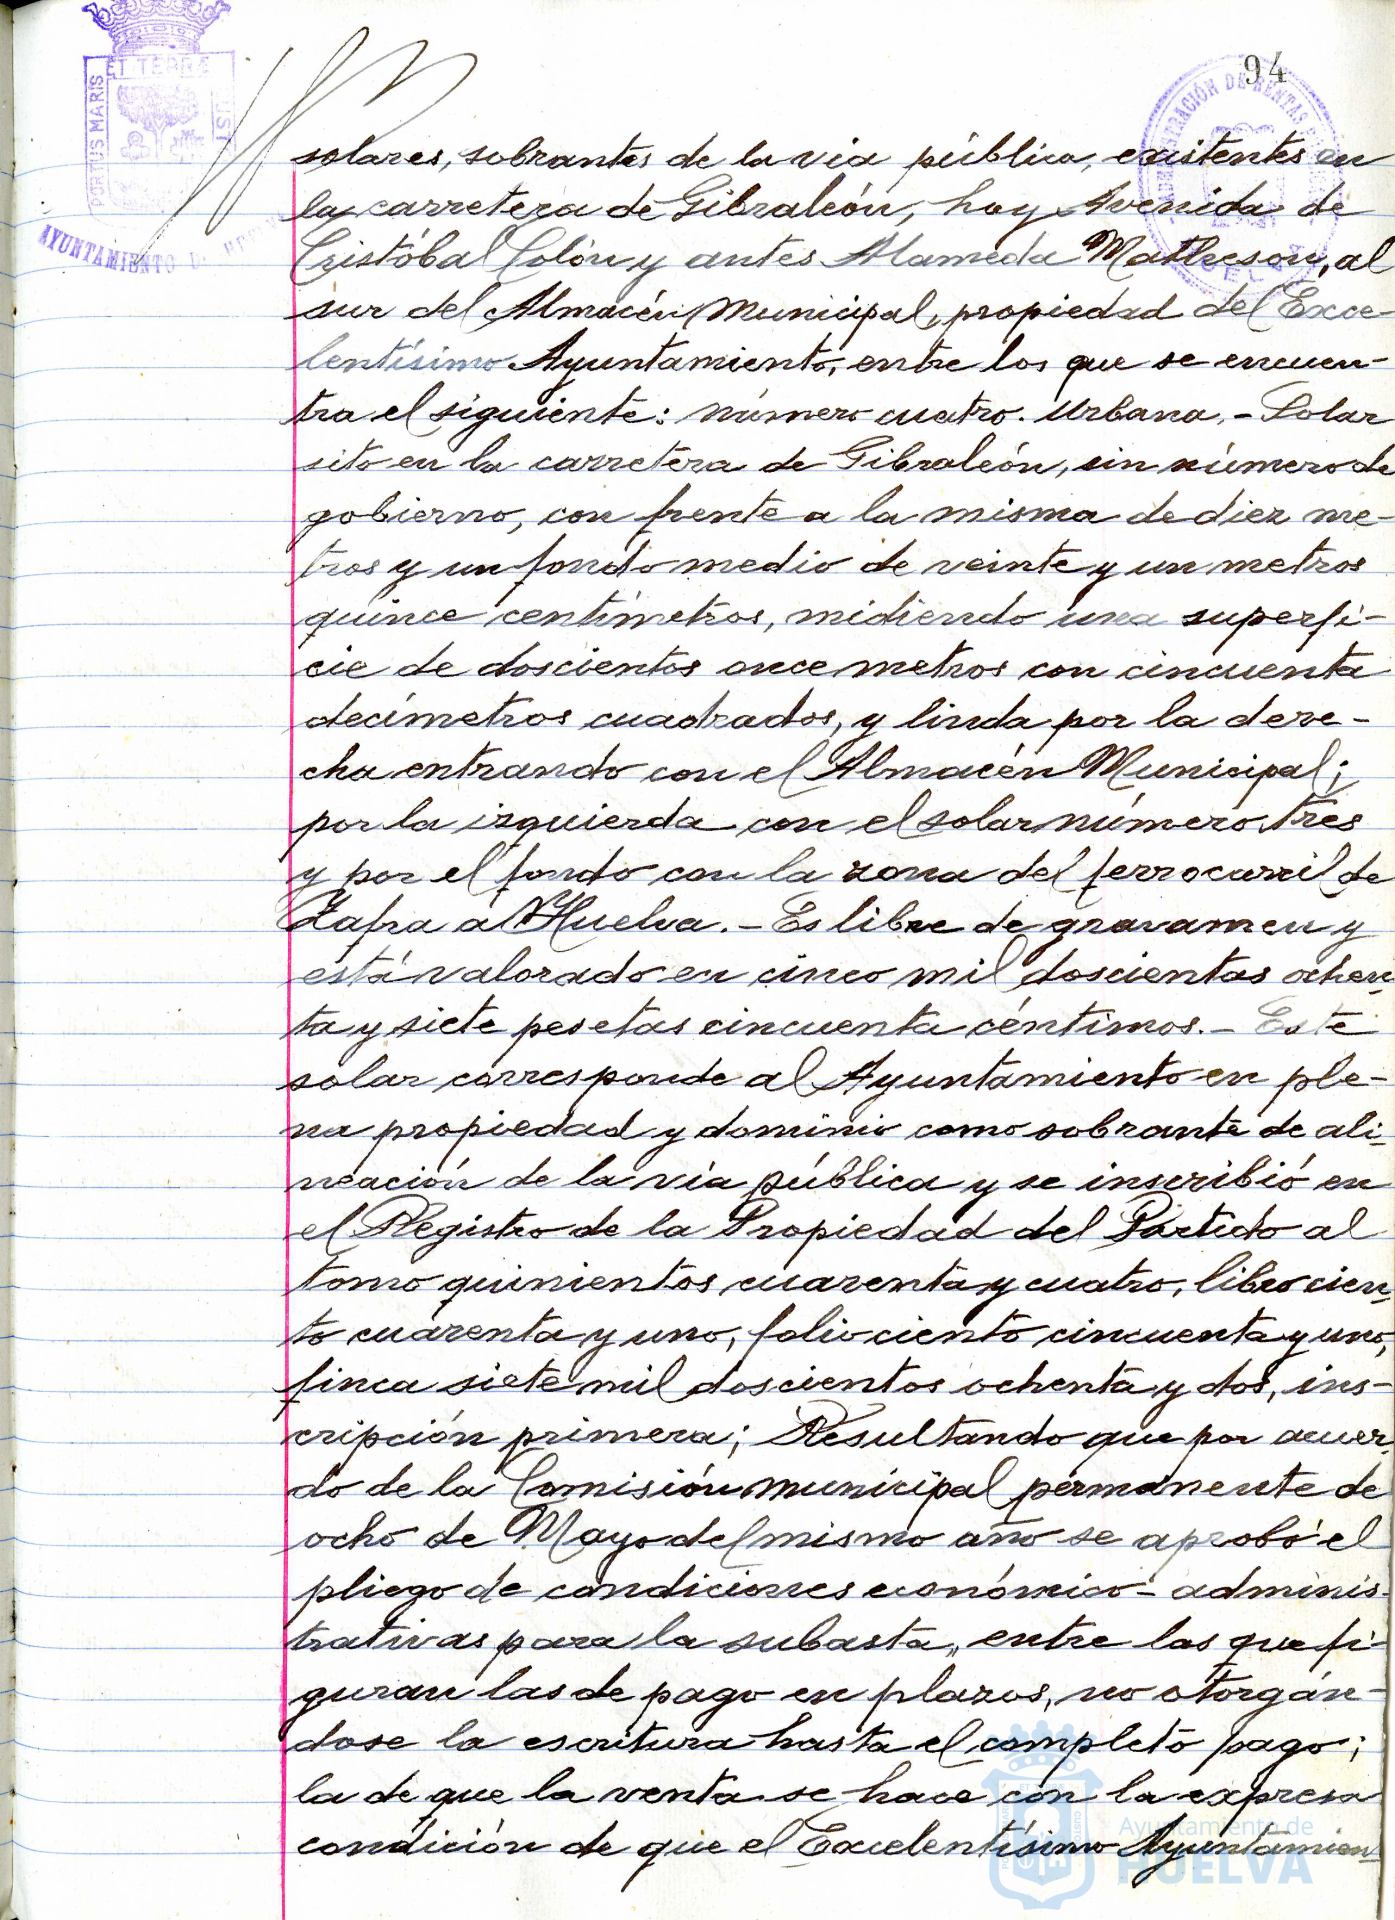 94
ET TERRÆ
PORTUS MARIS
AYUNTAMIENTO
solares, sobrantes de la via pública, existentes en
la carretera de Gibraleón, hoy Avenida de
Cristóbal Colón y antes Alameda Matheson, al
sur del Almacén Municipal, propiedad del Exce-
lentísimo Ayuntamiento, entre los que se encuen-
tra el siguiente: número cuatro. Urbana.- Solar
sito en la carretera de Gibraleón, sin número de
gobierno, con frente a la misma de diez me-
tros y un fondo medio de veinte y un metros
quince centímetros, midiendo una superfi-
cie de doscientos once metros con cincuenta
decímetros cuadrados, y linda por la dere-
cha entrando con el Almacén Municipal;
por la izquierda con el solar número tres
y por el fondo con la zona del ferrocarril de
Zafra a Huelva.- Es libre de gravamen y
está valorado en cinco mil doscientas ochen-
ta y siete pesetas cincuenta céntimos.- Este
solar corresponde al Ayuntamiento en ple-
na propiedad y dominio como sobrante de ali-
neación de la vía pública y se inscribió en
el Registro de la Propiedad del Partido al
tomo quinientos cuarenta y cuatro, libro cien-
to cuarenta y uno, folio ciento cincuenta y uno,
finca siete mil doscientos ochenta y dos, ins-
cripción primera; Resultando que por acuer-
do de la Comisión municipal permanente de
ocho de Mayo del mismo año se aprobó el
pliego de condiciones económico-adminis-
trativas para la subasta, entre las que fi-
guran las de pago en plazos, no otorgán-
dose la escritura hasta el completo pago;
la de que la venta se hace con la expresa
condición de que el Excelentísimo Ayuntamien-
Ayuntamiento de
HUELVA